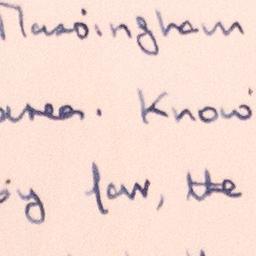 Massingham
area. Know
by law, the